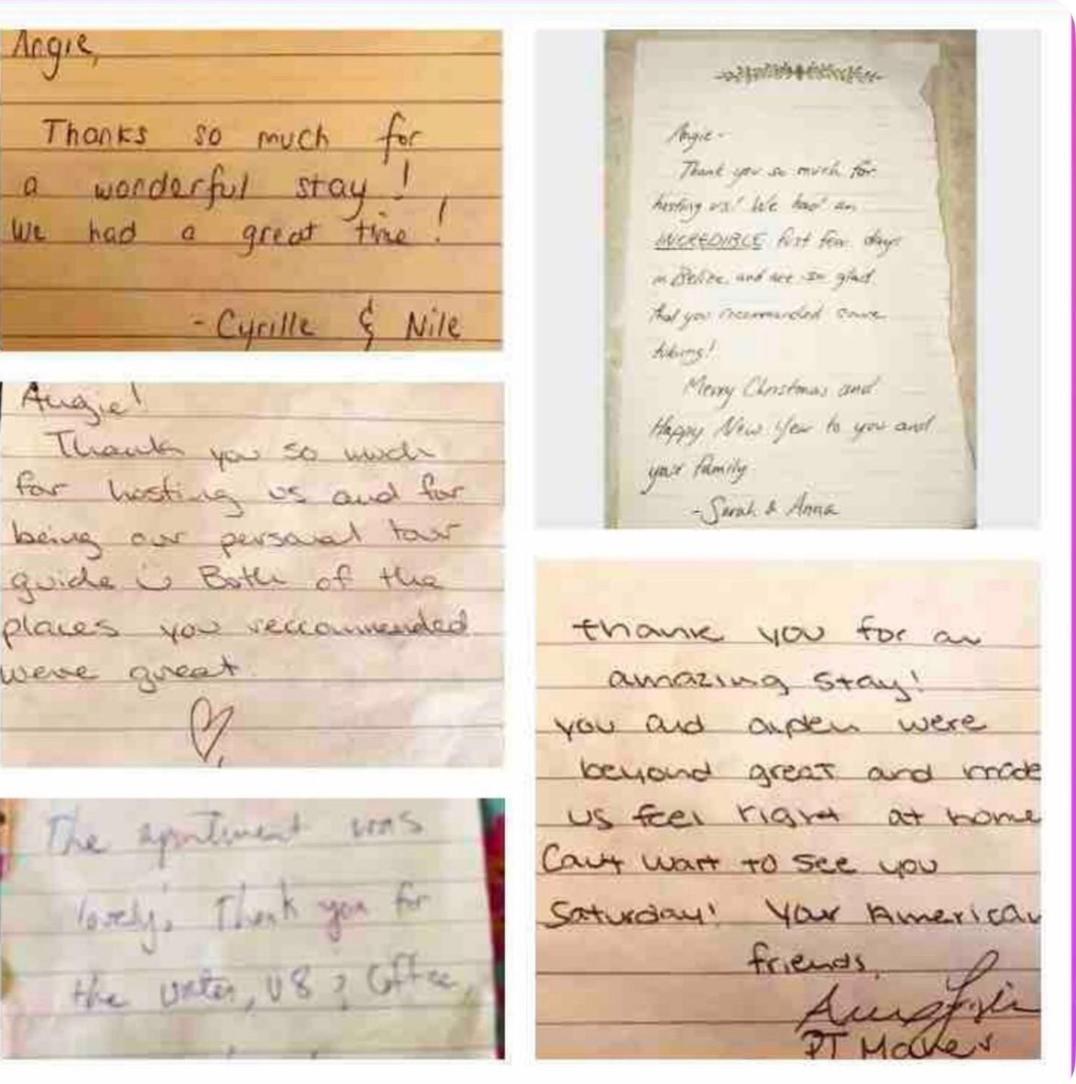 Angie,
Thanks so much for
a wonderful stay!
We had a great time!
- Cyrille & Nile
Angie!
Thank you so much
for hosting us and for
being our personal tour
guide Both of the
places you reccommended
were great.
The apartment was
lovely. Thank you for
the water, V8 & Coffee,
Angie-
Thank you so much for
hosting us! We had an
INCREDIBLE first few days
in Belize and are so glad
that you recommended cave
tubing!
Merry Christmas and
Happy New Year to you and
your family.
-Sarah & Anna
thank you for an
amazing stay!
you and were
beyond great and made
us feel right at home
Can't wait to see you
Saturday! Your American
friends,
PT